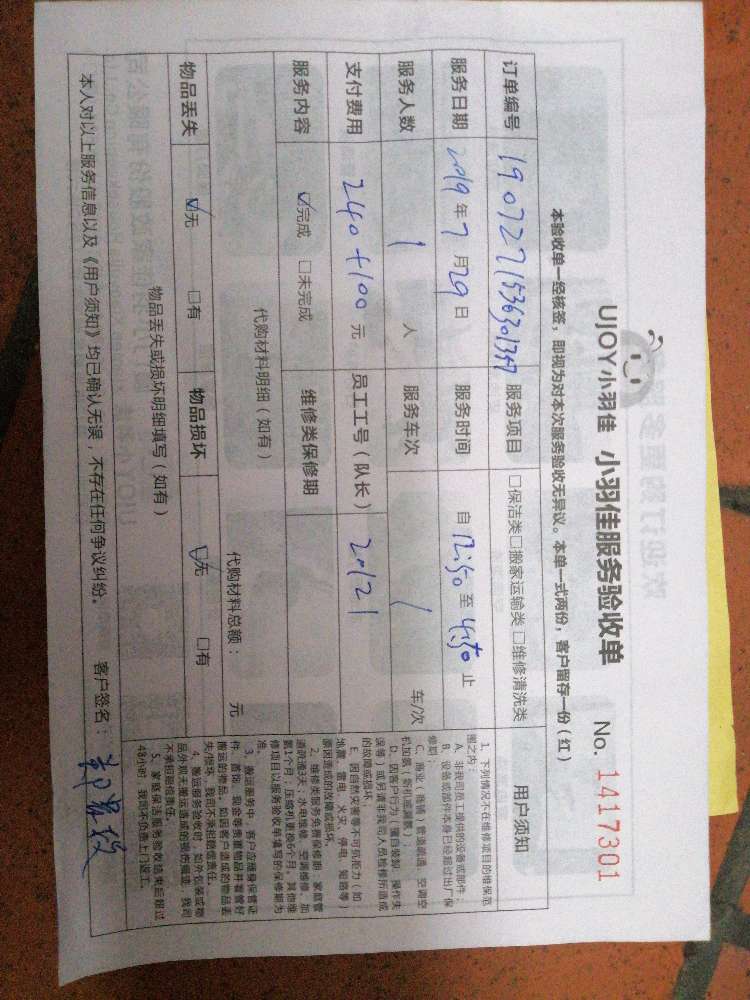 UJOY小羽佳 小羽佳服务验收单 No. 1417301
本验收单一经核签，即视为对本次服务验收无异议。本单一式两份，客户留存一份（红）
订单编号 服务项目 □保洁类□搬家运输类□维修清洗类
服务日期 2019 年 7 月 29 日 服务时间 自 12:50 至 4:50 止
服务人数 1 人 服务车次 / 车/次
支付费用 240+100 元 员工工号（队长） 20121
服务内容 ☑完成 □未完成 维修类保修期
代购材料明细（如有） 代购材料总额： 元
物品丢失 ☑无 □有 物品损坏 ☑无 □有
物品丢失或损坏明细填写（如有）
本人对以上服务信息以及《用户须知》均已确认无误，不存在任何争议纠纷。 客户签名：
用户须知
1、下列情况不在维修项目的维保范
围之内：
A、非我司员工提供的设备或部件；
B、设备或部件本身已经超过出厂保
修期；
C、商业（商铺）管道疏通、空调空
机加氨（停机或漏氨）；
D、因客户行为（擅自装卸、操作失
误等）或另请非我司人员检修所造成
的故障或损坏。
E、因自然灾害等不可抗拒力（如
地震、雷电、火灾、停电、短路等）
原因造成的故障或损坏。
2、维修类服务免费保修期：家庭管
道疏通3天；水电维修、空调维修、加
氨1个月；压缩机更换6个月，其他维
修项目以服务验收单填写的保修期为
准。
3、搬运服务中，客户应随身保管证
件、首饰、现金等贵重物品并看管好
搬运的物品，如因客户造成的物品丢
失/损坏，我司不承担赔偿责任。
4、搬运服务验收时，如外包装或物
品外观无搬运造成的破损痕迹，我司
不承担赔偿责任。
5、家庭保洁服务验收结束后超过
48小时，我司不负责上门返工。